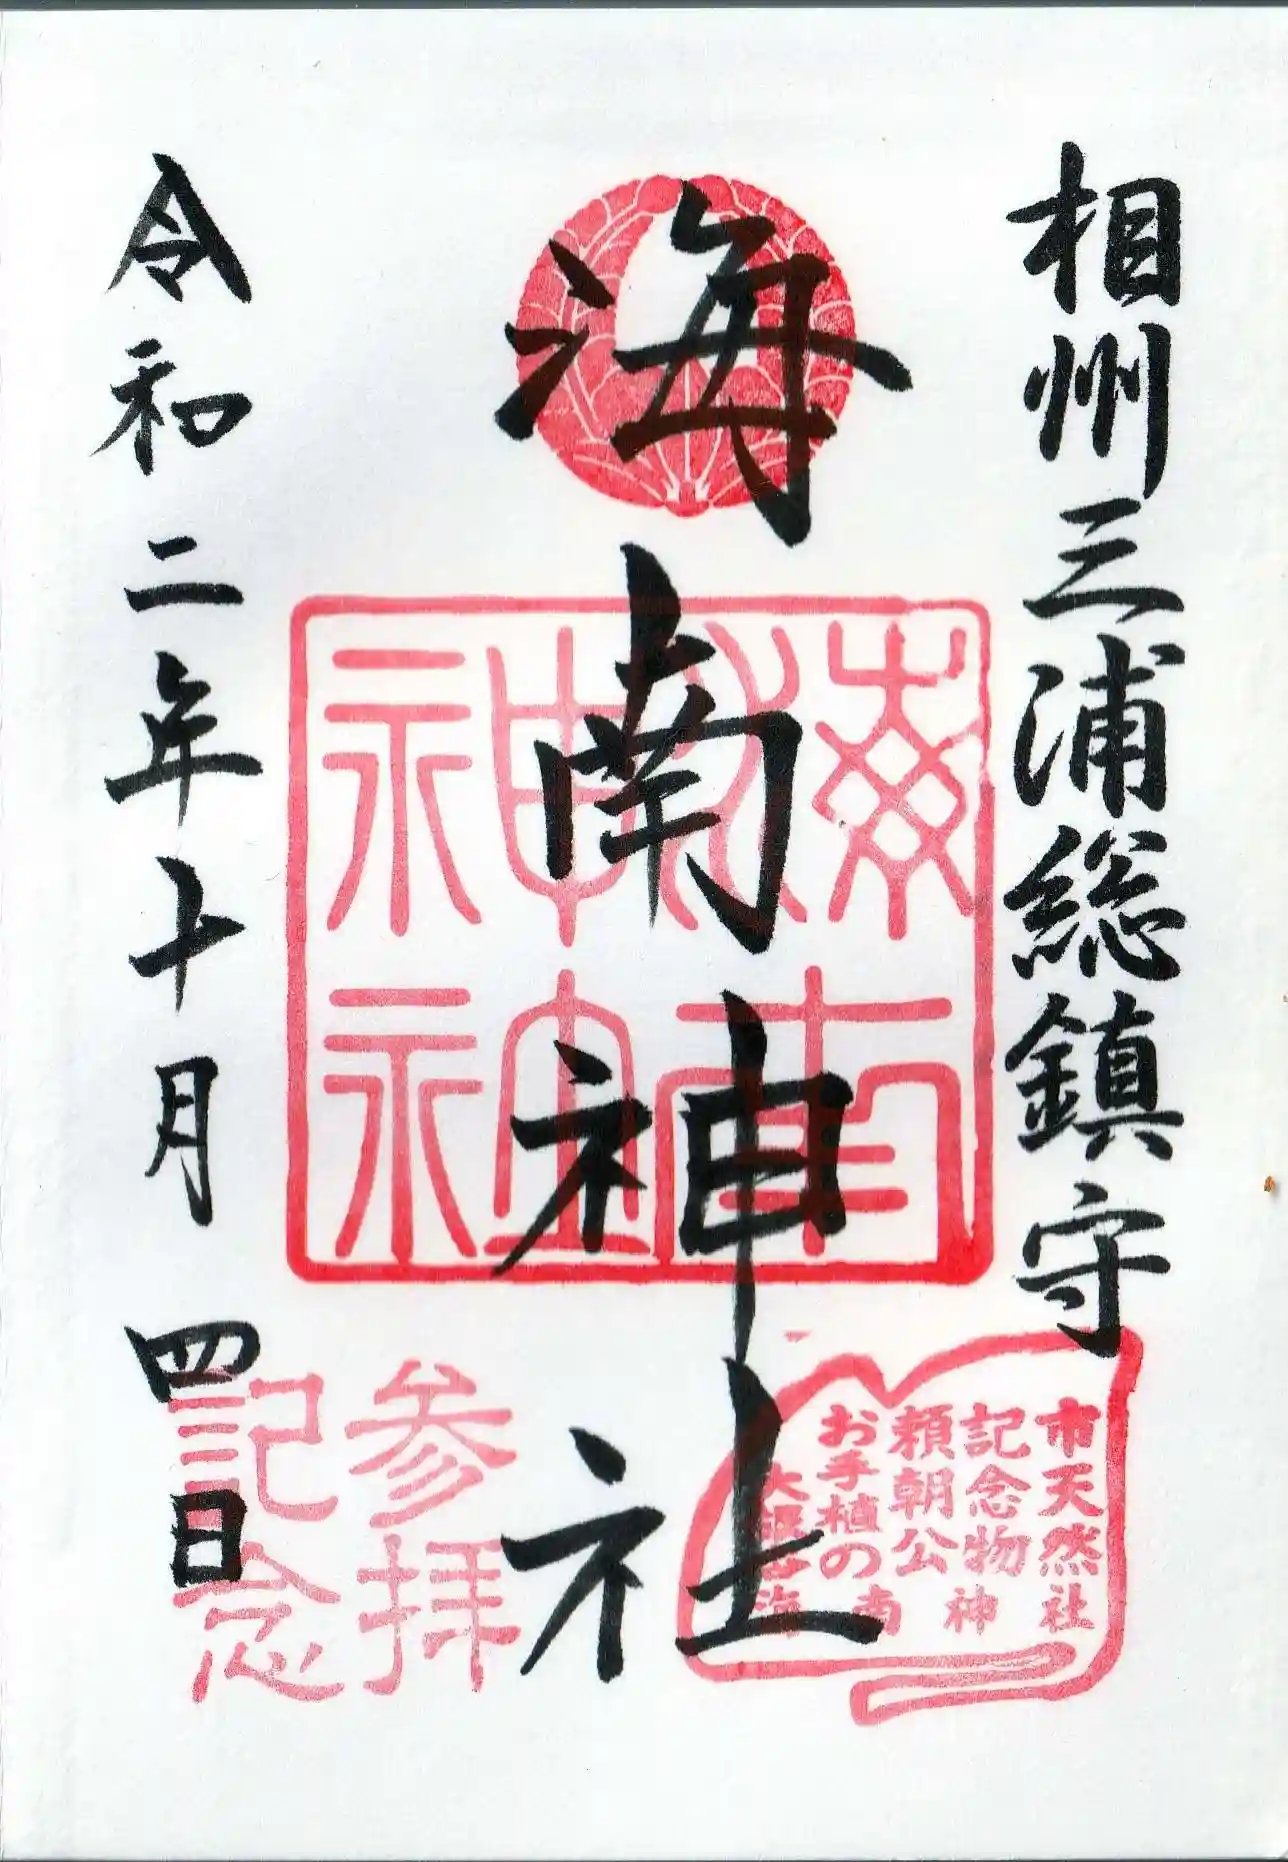 相州三浦総鎮守
海南神社
令和二年十月四日
海南神社
市天然
記念物
頼朝公
お手植の
海南神社
参拝
記念